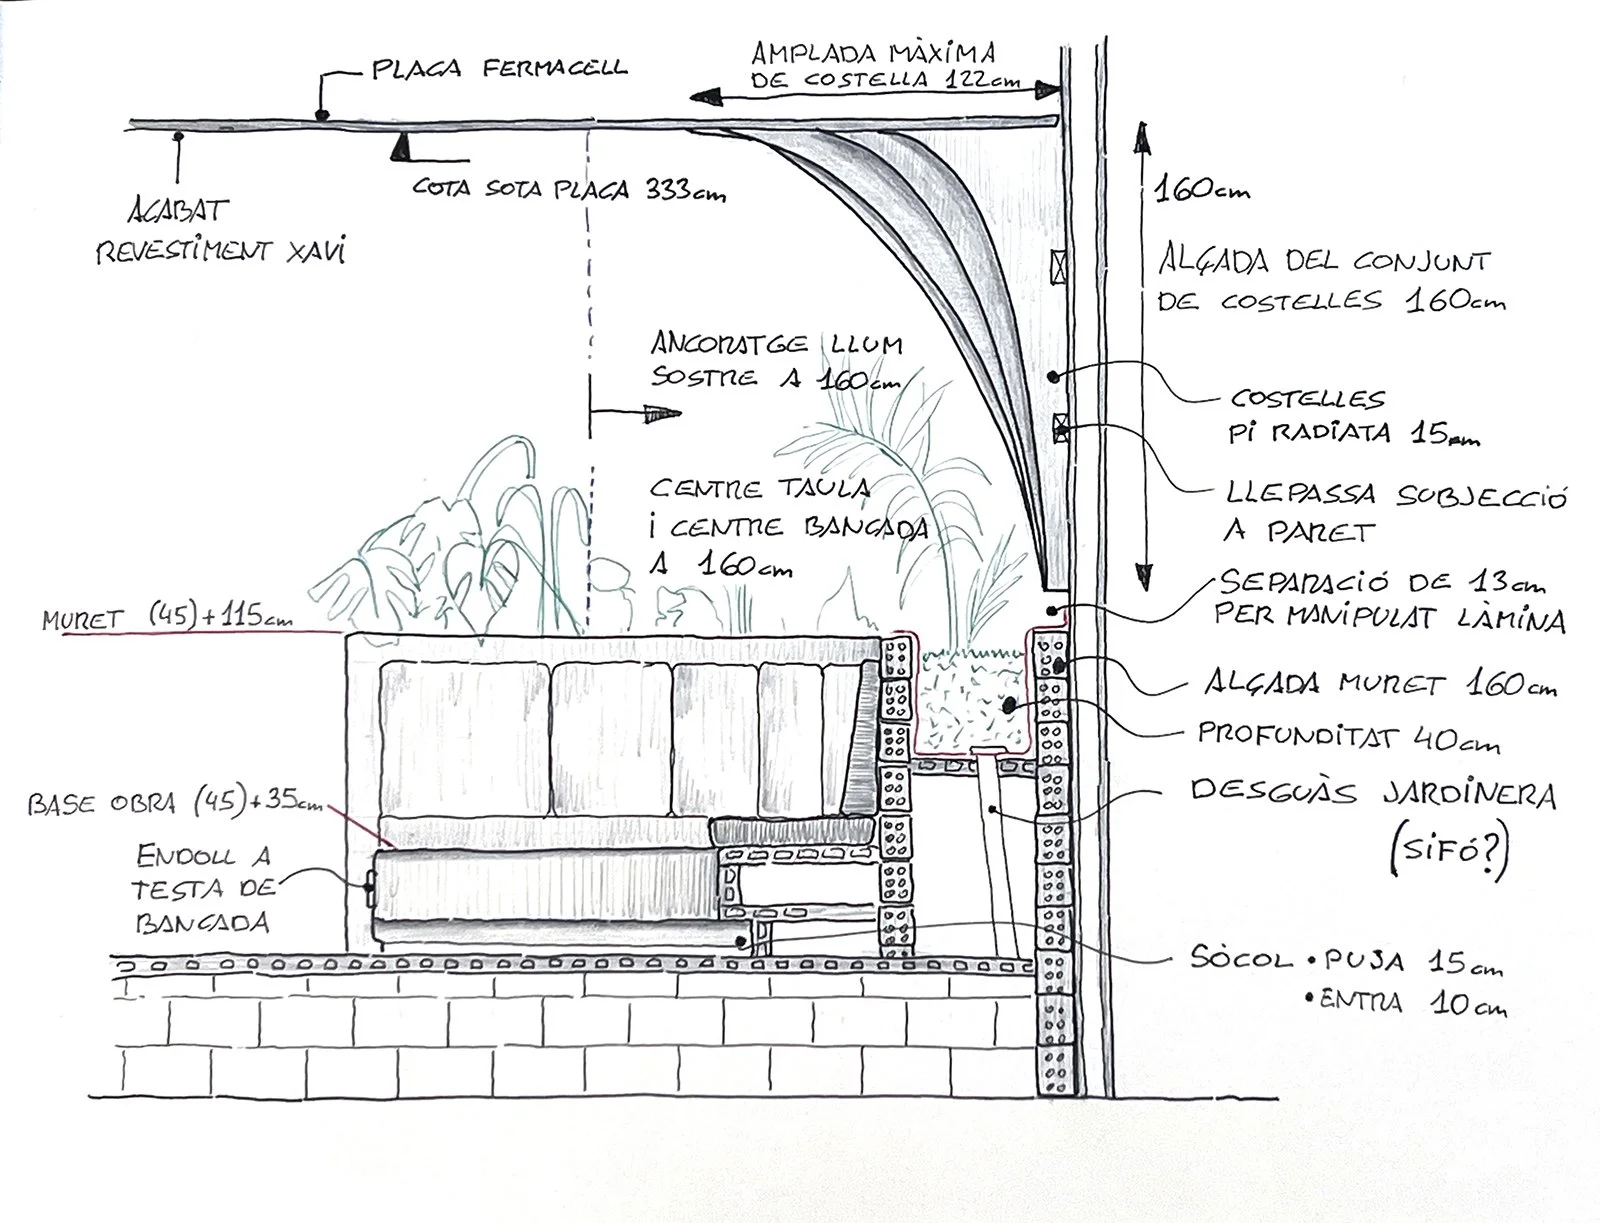 PLACA FERMACELL
AMPLADA MÀXIMA
DE COSTELLA 122cm
COTA SOTA PLACA 333cm
ACABAT
REVESTIMENT XAVI
160cm
ALÇADA DEL CONJUNT
DE COSTELLES 160cm
ANCORATGE LLUM
SOSTRE A 160cm
COSTELLES
PI RADIATA 15mm
CENTRE TAULA
I CENTRE BANCADA
A 160cm
LLEPASSA SUBJECCIÓ
A PARET
SEPARACIÓ DE 13cm
PER MANIPULAT LÀMINA
MURET (45)+115cm
ALÇADA MURET 160cm
PROFUNDITAT 40cm
DESGUÀS JARDINERA
(SIFÓ?)
BASE OBRA (45)+35cm
ENDOLL A
TESTA DE
BANCADA
SÒCOL • PUJA 15cm
• ENTRA 10cm